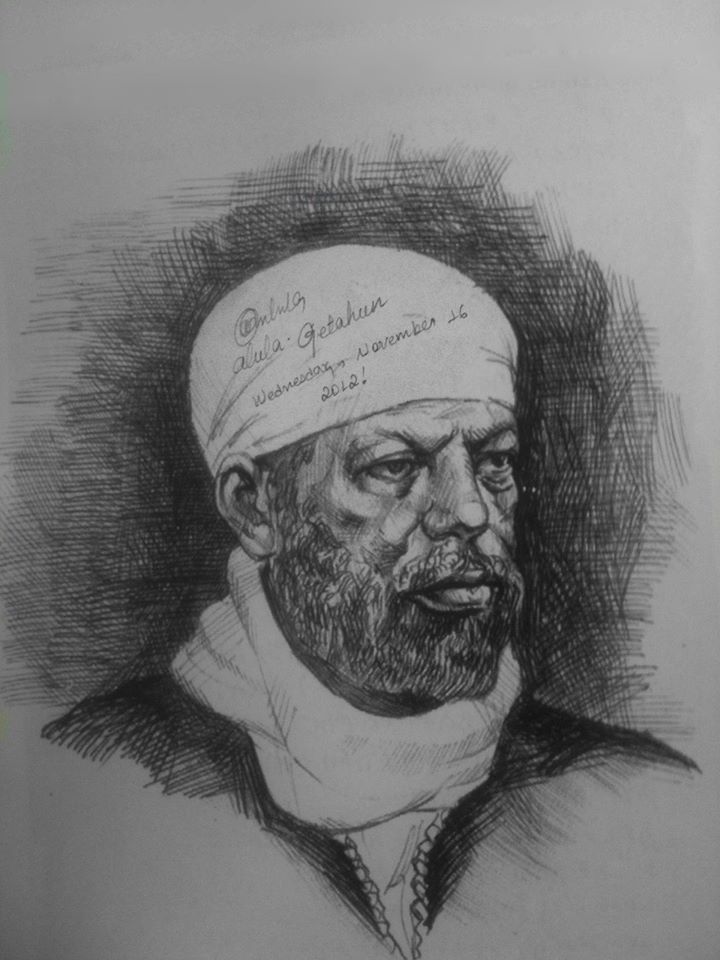 alula. Getahun
Wednesday, November 16
2012!